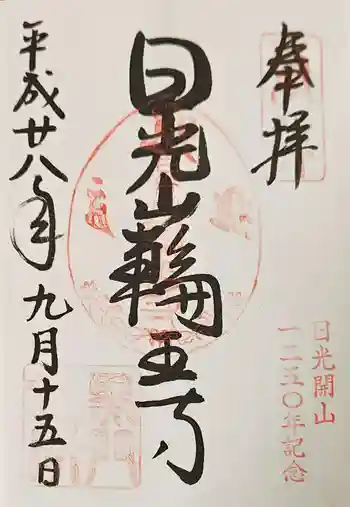 奉拝
日光開山
一二五〇年記念
日光山輪王寺
平成廿八年九月十五日